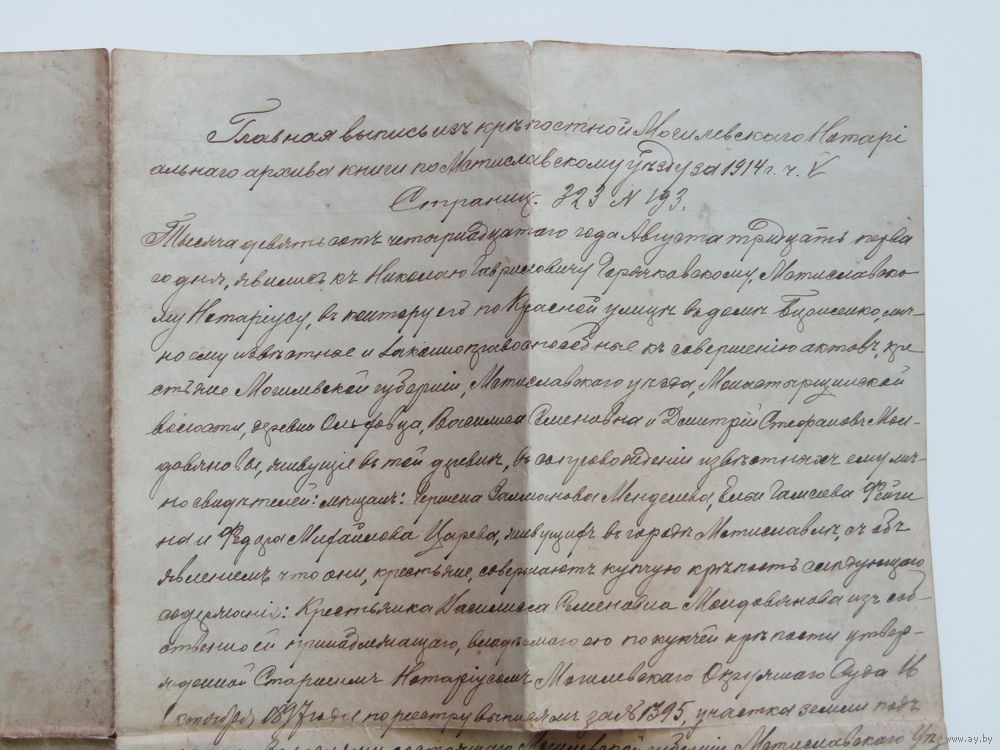 Главная выпись изъ крѣпостной Могилевскаго Нотарі
альнаго архива книги по Мстиславскому уѣзду за 1914 г. ч. V
Страниц. 323 N 193.
Тысяча девятьсотъ четырнадцатаго года Августа тридцать перва
го дня, явились къ Николаю Гавриловичу Горячковскому, Мстиславско
му Нотаріусу, въ контору его по Красной улицѣ въ домѣ Борисенко, лич-
но ему извѣстные и законно правоспособные къ совершенію актовъ, кре
стьяне Могилевской губерніи, Мстиславскаго уѣзда, Монастырщинской
волости, деревни Василиса Семеновна и Дмитрій Стефановъ Мол-
довяновы, живущіе въ той деревнѣ, въ сопровожденіи извѣстныхъ ему лич
но свидѣтелей: мѣщанъ: Залманова Менделева, Ельи Фейги
на и Федора Михайлова Царева, живущихъ въ городѣ Мстиславлѣ, съ объ
явленіемъ что они, крестьяне, совершаютъ купчую крѣпость слѣдующаго
содержанія: Крестьянка Василиса Семеновна Молдовянова изъ соб-
ственно ей принадлежащаго, владѣемаго ею по купчей крѣпости утвер-
жденной Старшимъ Нотаріусомъ Могилевскаго Окружнаго Суда 16
Октября 1897 года по реестру выписямъ за № 1395, участка земли подъ
состоящаго Могилевской губерніи Мстиславскаго
www.ay.by